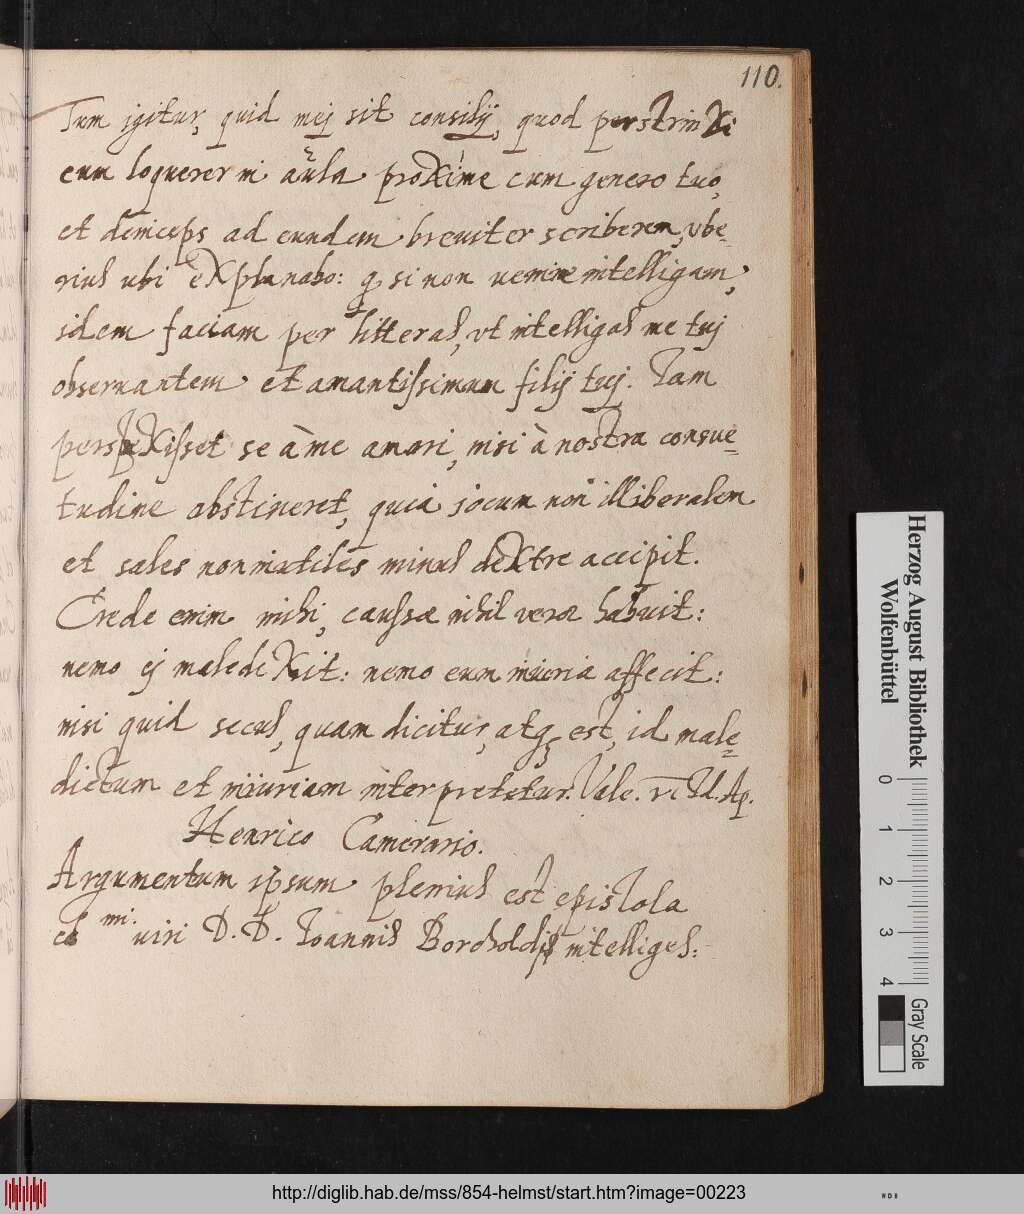 110.
Tum igitur, quid mej sit consilij, quod perstrinxi
cum loquerer in aula proxime cum genero tuo,
et deinceps ad eundem breviter scriberem, vbe=
rius ubi explanabo: q si non venire intelligam,
idem faciam per litteras, vt intelligas me tuj
observantem et amantissimum filij tuj. Jam
perspexisset se à me amari, nisi à nostra consue=
tudine abstineret, quia jocum non illiberalem
et sales non inutiles minus dextre accipit.
Crede enim mihi, caussae nihil verae habuit:
nemo ej maledixit: nemo eum iniuria affecit:
nisi quid secus, quam dicitur, atq est, id male=
dictum et iniuriam interpretetur. Vale. vi Id. Ap.
Henrico Camerario.
Argumentum ipsum plenius est epistola
viri D. D. Joannis Borcholdij intelliges:
Herzog August Bibliothek
Wolfenbüttel
0 1 2 3 4
Gray Scale
http://diglib.hab.de/mss/854-helmst/start.htm?image=00223
WDB